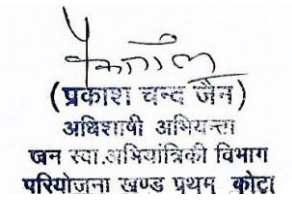 (प्रकाश चन्द जैन)
अधिशाषी अभियन्ता
जन स्वा.अभियांत्रिकी विभाग
परियोजना खण्ड प्रथम कोटा